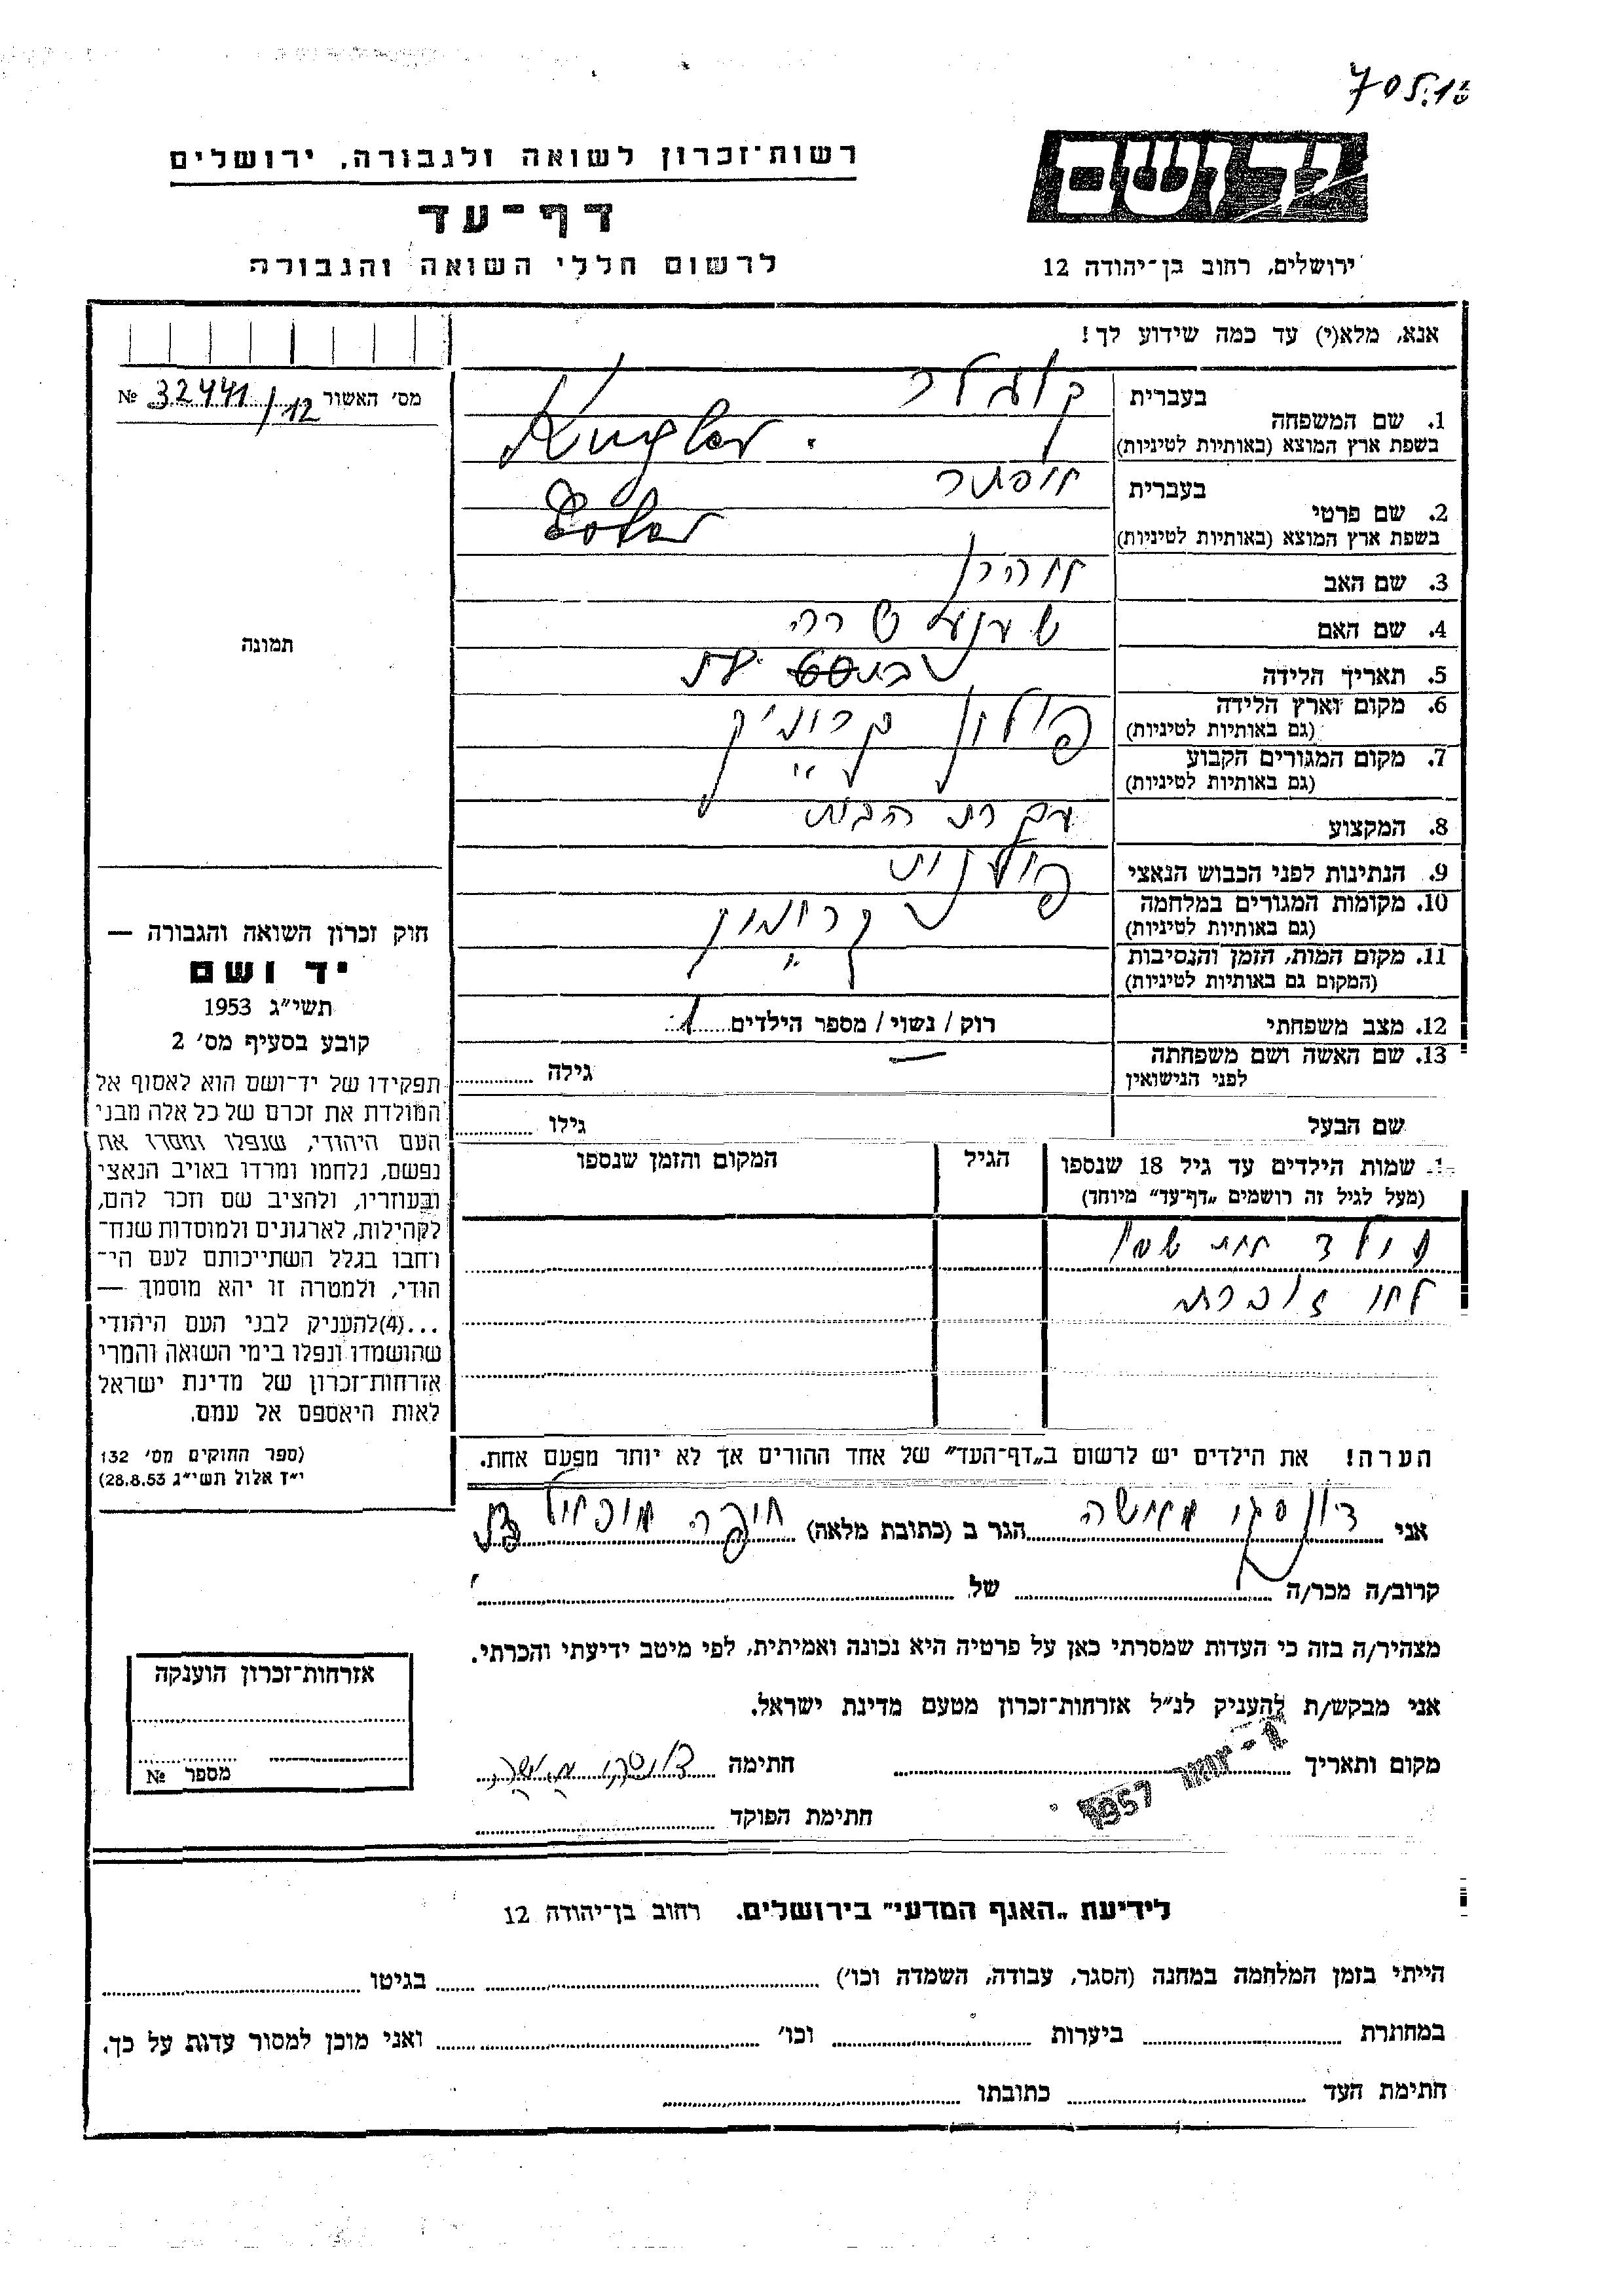 705.18
יד ושם
רשות־זכרון לשואה ולגבורה, ירושלים
דף־עד
לרשום חללי השואה והגבורה
ירושלים, רחוב בן־יהודה 12
אנא, מלא(י) עד כמה שידוע לך!
מס׳ האשור 32441/12 №
1. שם המשפחה
בעברית קוגלר
בשפת ארץ המוצא (באותיות לטיניות) Kugler.
2. שם פרטי
בעברית אסתר
בשפת ארץ המוצא (באותיות לטיניות) Ester
3. שם האב אהרן
4. שם האם שרה
5. תאריך הלידה
6. מקום וארץ הלידה
(גם באותיות לטיניות) פולין
7. מקום המגורים הקבוע
(גם באותיות לטיניות) " "
8. המקצוע עקרת הבית
9. הנתינות לפני הכבוש הנאצי פולנית
10. מקומות המגורים במלחמה
(גם באותיות לטיניות)
11. מקום המות, הזמן והנסיבות
(המקום גם באותיות לטיניות) "
12. מצב משפחתי רוק / נשוי / מספר הילדים 1
13. שם האשה ושם משפחתה
לפני הנישואין — גילה
שם הבעל גילו
שמות הילדים עד גיל 18 שנספו
(מעל לגיל זה רושמים „דף־עד״ מיוחד)
הגיל
המקום והזמן שנספו
ילד אחת
זוכרת
הערה! את הילדים יש לרשום ב„דף־העד״ של אחד ההורים אך לא יותר מפעם אחת.
תמונה
חוק זכרון השואה והגבורה —
יד ושם
תשי״ג 1953
קובע בסעיף מס׳ 2
תפקידו של יד־ושם הוא לאסוף אל
המולדת את זכרם של כל אלה מבני
העם היהודי, שנפלו ומסרו את
נפשם, נלחמו ומרדו באויב הנאצי
ובעוזריו, ולהציב שם וזכר להם,
לקהילות, לארגונים ולמוסדות שנח־
רחבו בגלל השתייכותם לעם הי־
הודי, ולמטרה זו יהא מוסמך —
...(4)להעניק לבני העם היהודי
שהושמדו ונפלו בימי השואה והמרי
אזרחות־זכרון של מדינת ישראל
לאות היאספם אל עמם.
(ספר החוקים מס׳ 132
י״ד אלול תשי״ג 28.8.53)
אני הגר ב (כתובת מלאה) חיפה
קרוב/ה מכר/ה של
מצהיר/ה בזה כי העדות שמסרתי כאן על פרטיה היא נכונה ואמיתית, לפי מיטב ידיעתי והכרתי.
אני מבקש/ת להעניק לנ״ל אזרחות־זכרון מטעם מדינת ישראל.
מקום ותאריך 1957 חתימה
חתימת הפוקד
אזרחות־זכרון הוענקה
מספר №
לידיעת „האגף המדעי״ בירושלים. רחוב בן־יהודה 12
הייתי בזמן המלחמה במחנה (הסגר, עבודה, השמדה וכו׳) בגיטו
במחתרת ביערות וכו׳ ואני מוכן למסור עדות על כך.
חתימת העד כתובתו